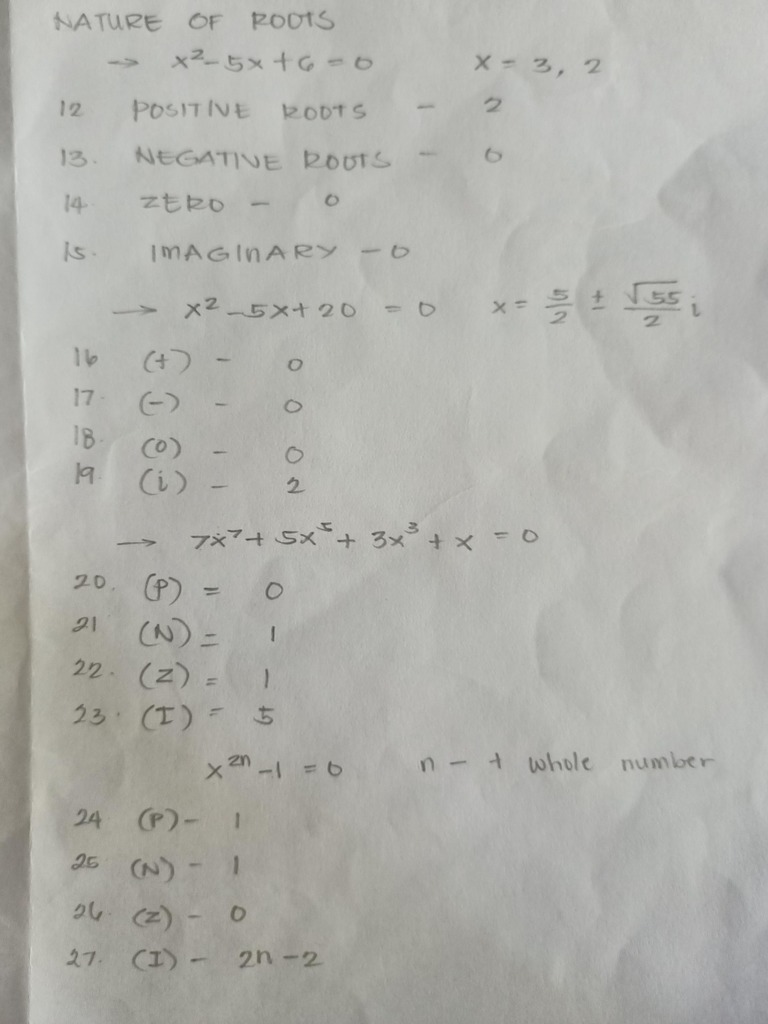 NATURE OF ROOTS
→ x²-5x+6=0 x = 3, 2
12 POSITIVE ROOTS - 2
13. NEGATIVE ROOTS - 0
14 ZERO - 0
15. IMAGINARY - 0
→ x²-5x+20 = 0 x = 5/2 ± √55/2 i
16 (+) - 0
17. (-) - 0
18. (0) - 0
19. (i) - 2
→ 7x⁷+ 5x⁵+ 3x³+ x = 0
20. (P) = 0
21 (N) = 1
22. (Z) = 1
23. (I) = 5
x²ⁿ-1 = 0 n - + whole number
24 (P)- 1
25 (N) - 1
26. (Z) - 0
27. (I) - 2n-2